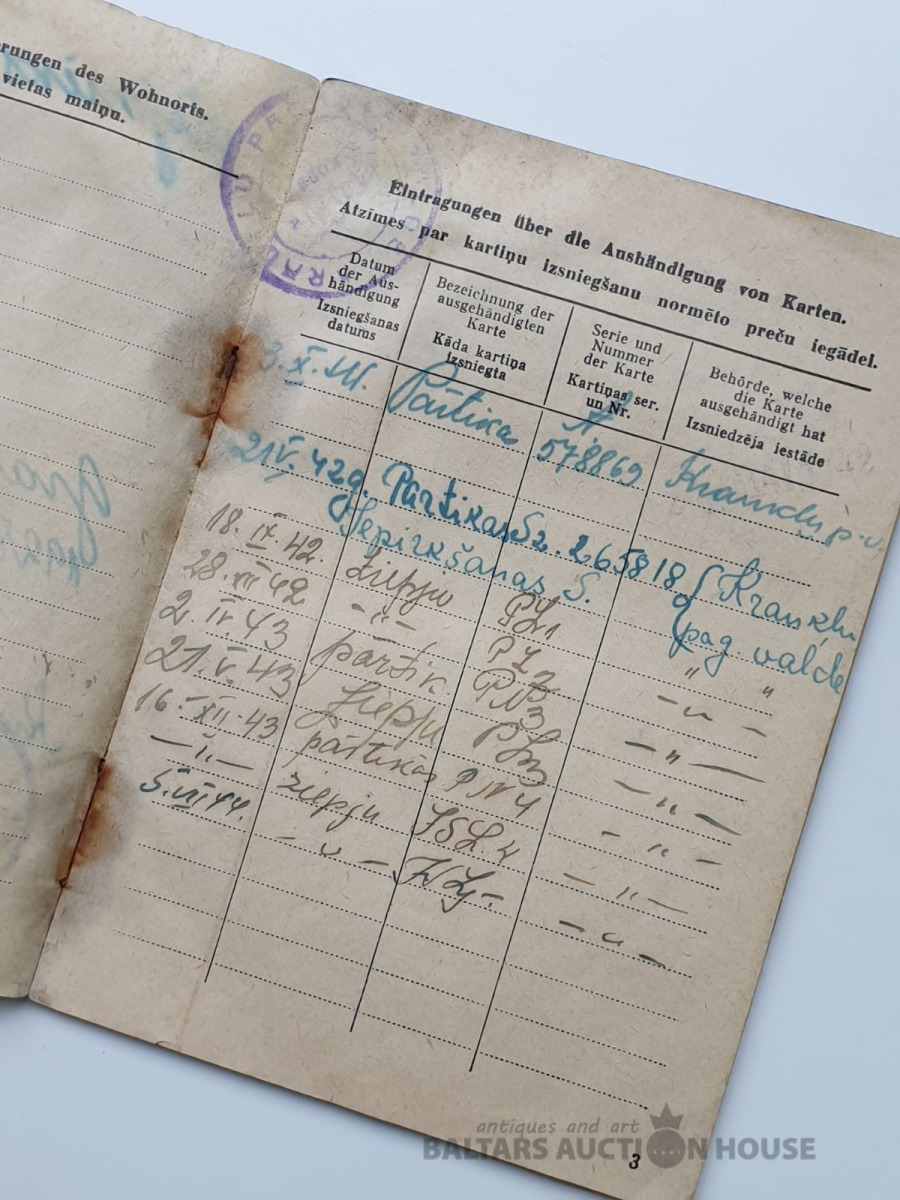 rungen des Wohnorts.
vietas maiņu.
Eintragungen über die Aushändigung von Karten.
Atzīmes par kartiņu izsniegšanu normēto preču iegādei.
Datum
der Aus-
händigung
Izsniegšanas
datums
Bezeichnung der
ausgehändigten
Karte
Kāda kartiņa
izsniegta
Serie und
Nummer
der Karte
Kartiņas ser.
un Nr.
Behörde, welche
die Karte
ausgehändigt hat
Izsniedzēja iestāde
3. X. 41. Pārtikas A. 578869
21 V. 42 g. Pārtikas Sz. 265818
Iepirkšanas S. pag valde
18. IX 42 Ziepju PZ1 " "
28. XII 42 - " - PZ2 - " -
2. IV. 43 pārtik PN3 - " -
21. V. 43 Ziepju PZ3 - " -
16. XII 43 pārtikas PN4 - " -
- " - ziepju SZ4 - " -
5. VII 44. - " - - " -
3
antiques and art
BALTARS AUCTION HOUSE